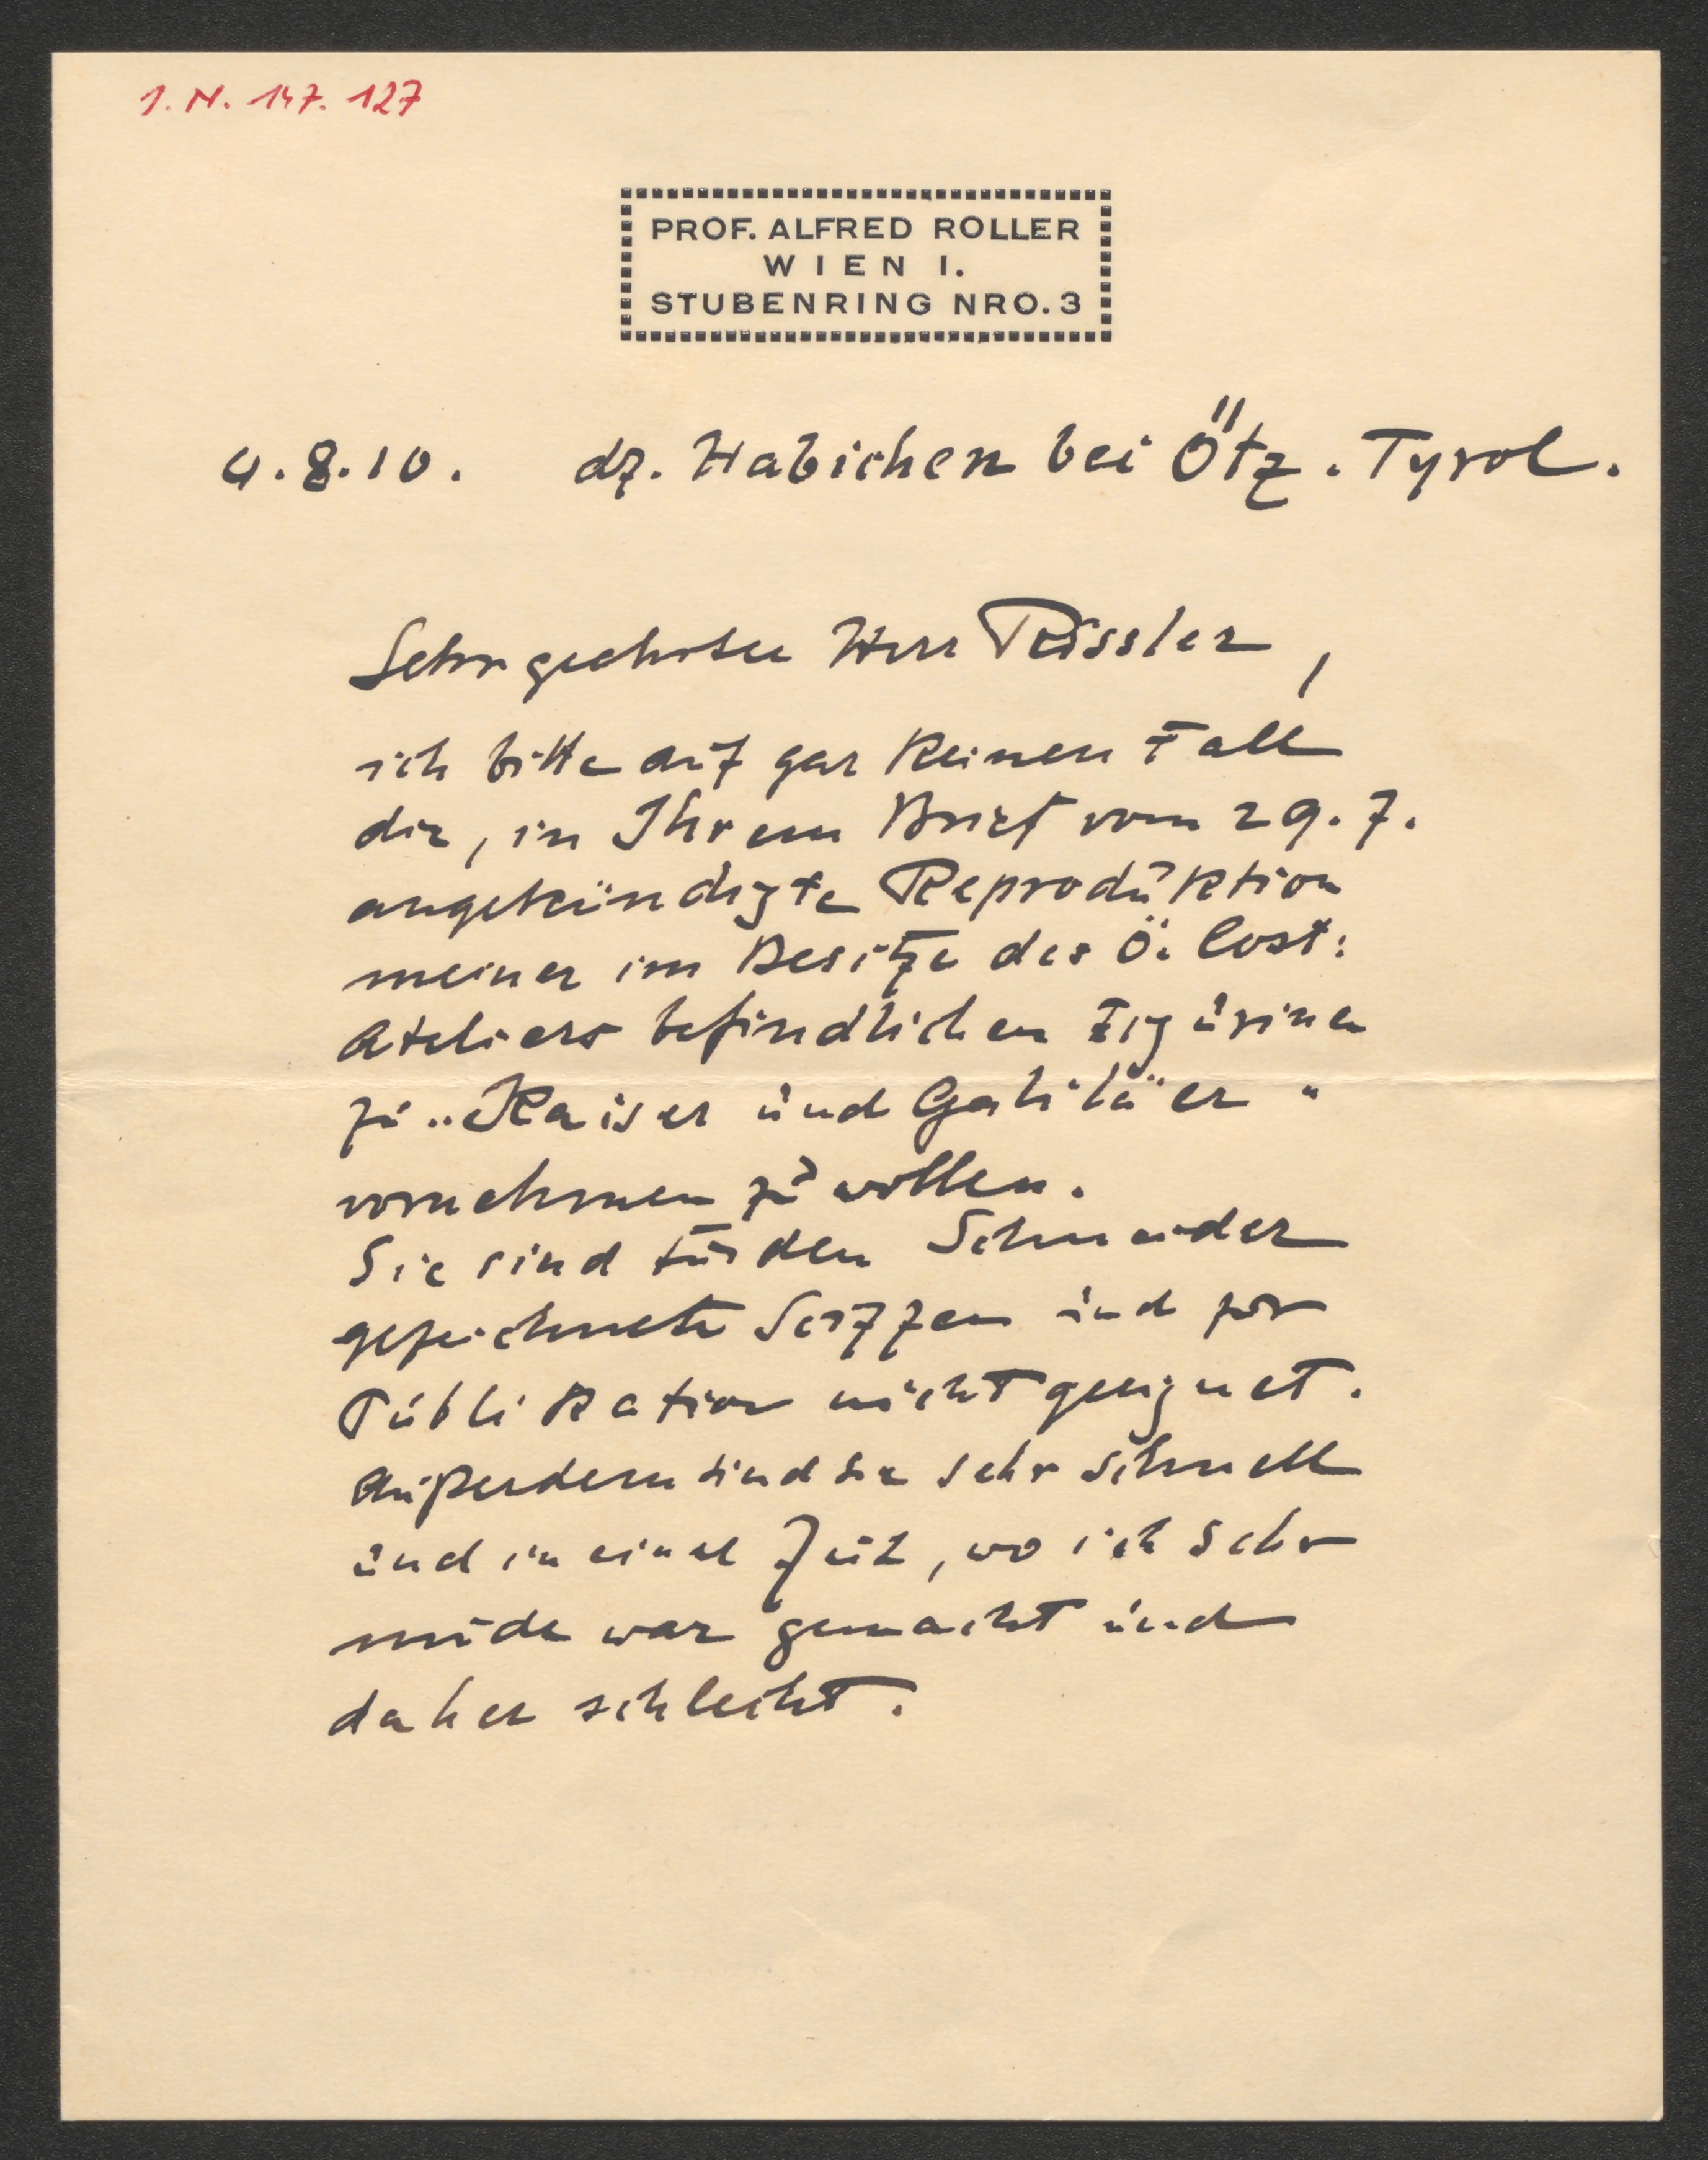 I.N. 147.127
PROF. ALFRED ROLLER
WIEN I.
STUBENRING NRO. 3
4.8.10. dz. Habichen bei Ötz. Tyrol.
Sehr geehrter Herr Rössler,
ich bitte auf gar keinen Fall
die, in Ihrem Brief vom 29.7.
angekündigte Reproduktion
meiner im Besitze des Ö. Cost:
Ateliers befindlichen Figurinen
zu „Kaiser und Galiläer"
vornehmen zu wollen.
Sie sind für den Schneider
gezeichnete Scizzen und zur
Publikation nicht geeignet.
Außerdem sind sie sehr schnell
und in einer Zeit, wo ich sehr
müde war gemacht und
daher schlecht.